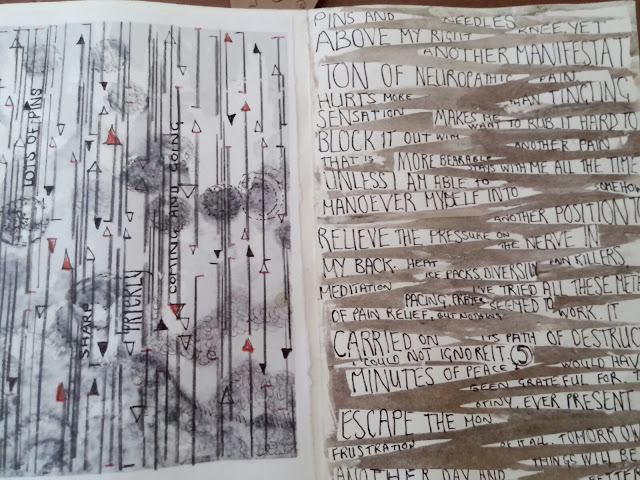 LOTS OF PINS
COMING AND GOING
SHARP
PRICKLY
PINS AND NEEDLES
ABOVE MY RIGHT KNEE YET
ANOTHER MANIFESTAT
TON OF NEUROPATHIC PAIN
HURTS MORE THAN TINGLING
SENSATION MAKES ME WANT TO RUB IT HARD TO
BLOCK IT OUT WITH ANOTHER PAIN
THAT IS MORE BEARABLE STAYS WITH ME ALL THE TIME
UNLESS I AM ABLE TO
MANOEVER MYSELF INTO
ANOTHER POSITION TO
RELIEVE THE PRESSURE ON THE NERVE IN
MY BACK. HEAT ICE PACKS DIVERSION PAIN KILLERS
MEDITATION PACING, PRAYER I'VE TRIED ALL THESE MET
OF PAIN RELIEF, BUT SEEMED TO WORK. IT
CARRIED ON ITS PATH OF DESTRUC
I COULD NOT IGNORE IT. 5
MINUTES OF PEACE WOULD HAVE
BEEN GRATEFUL FOR
A TINY, EVER PRESENT
ESCAPE THE MON
FRUSTRATION OF IT ALL. TOMORROW
THINGS WILL BE
ANOTHER DAY AND BETTER